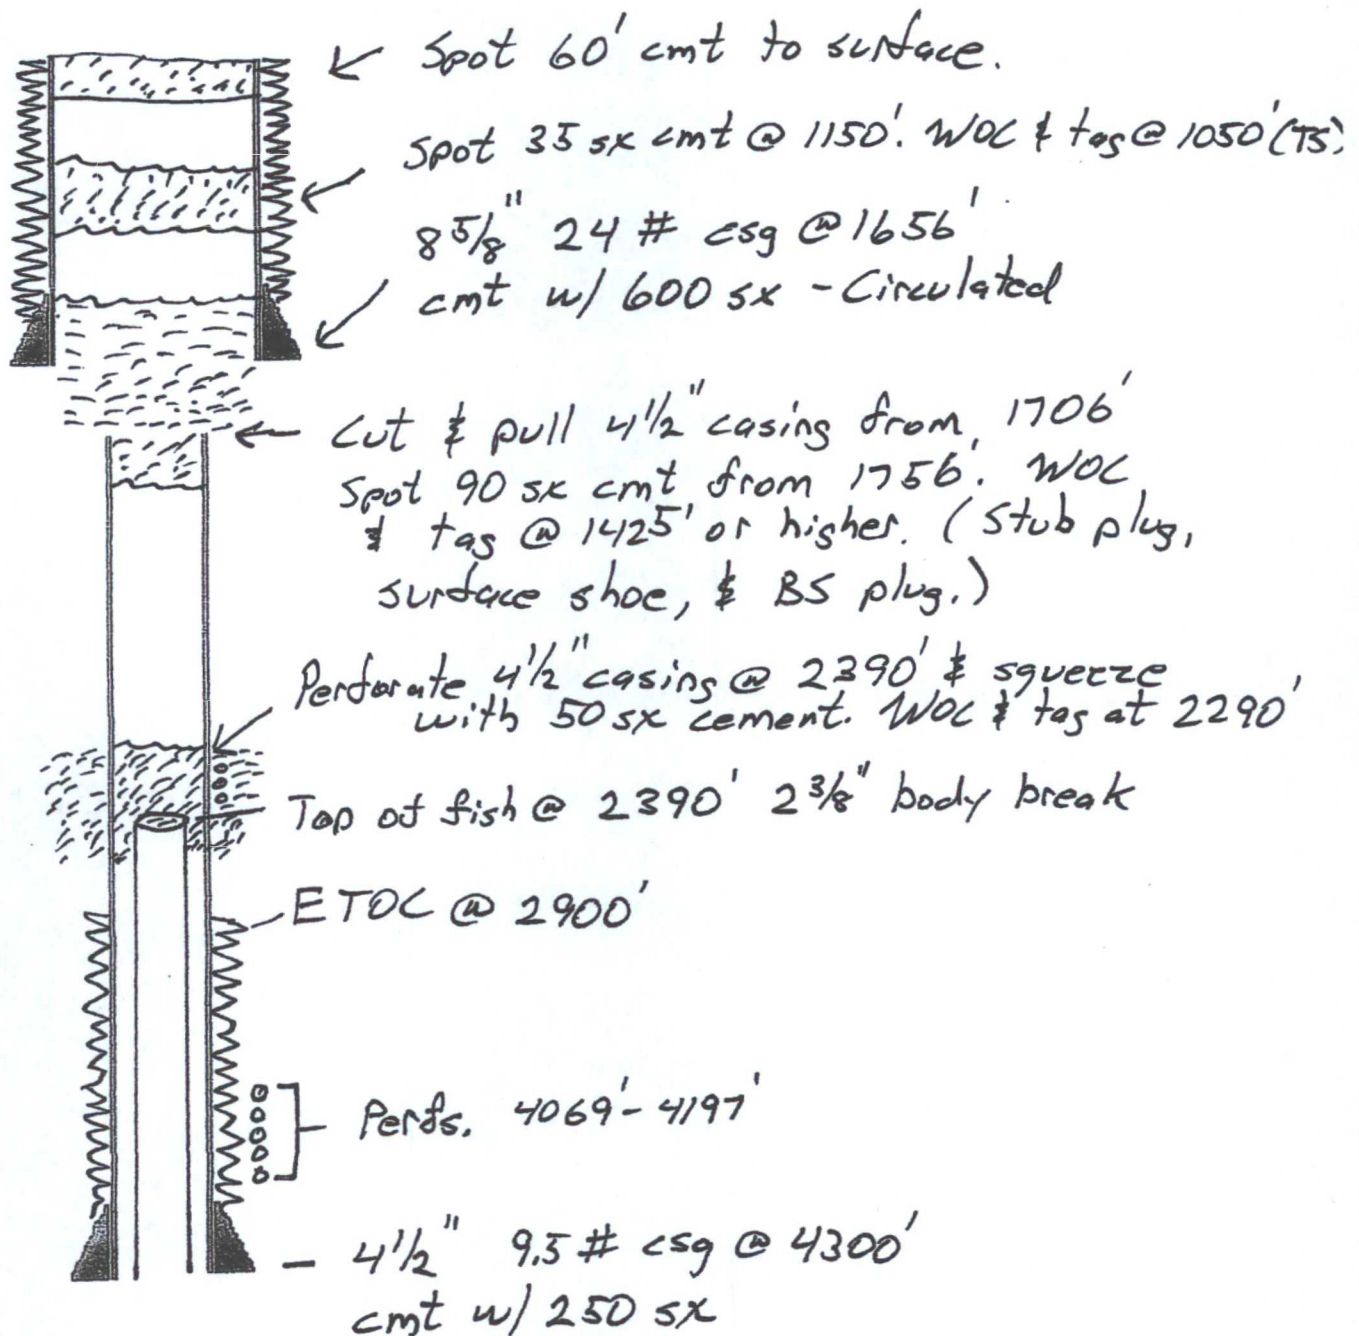 Spot 60' cmt to surface.
Spot 35 sx cmt @ 1150'. WOC & tag @ 1050' (TS)
8 5/8" 24 # csg @ 1656'
cmt w/ 600 sx - Circulated
Cut & pull 4 1/2" casing from 1706'
Spot 90 sx cmt from 1756'. WOC
& tag @ 1425' or higher. (Stub plug,
surface shoe, & BS plug.)
Perforate 4 1/2" casing @ 2390' & squeeze
with 50 sx cement. WOC & tag at 2290'
Top of fish @ 2390' 2 3/8" body break
ETOC @ 2900'
Perfs. 4069'- 4197'
4 1/2" 9.5 # csg @ 4300'
cmt w/ 250 sx